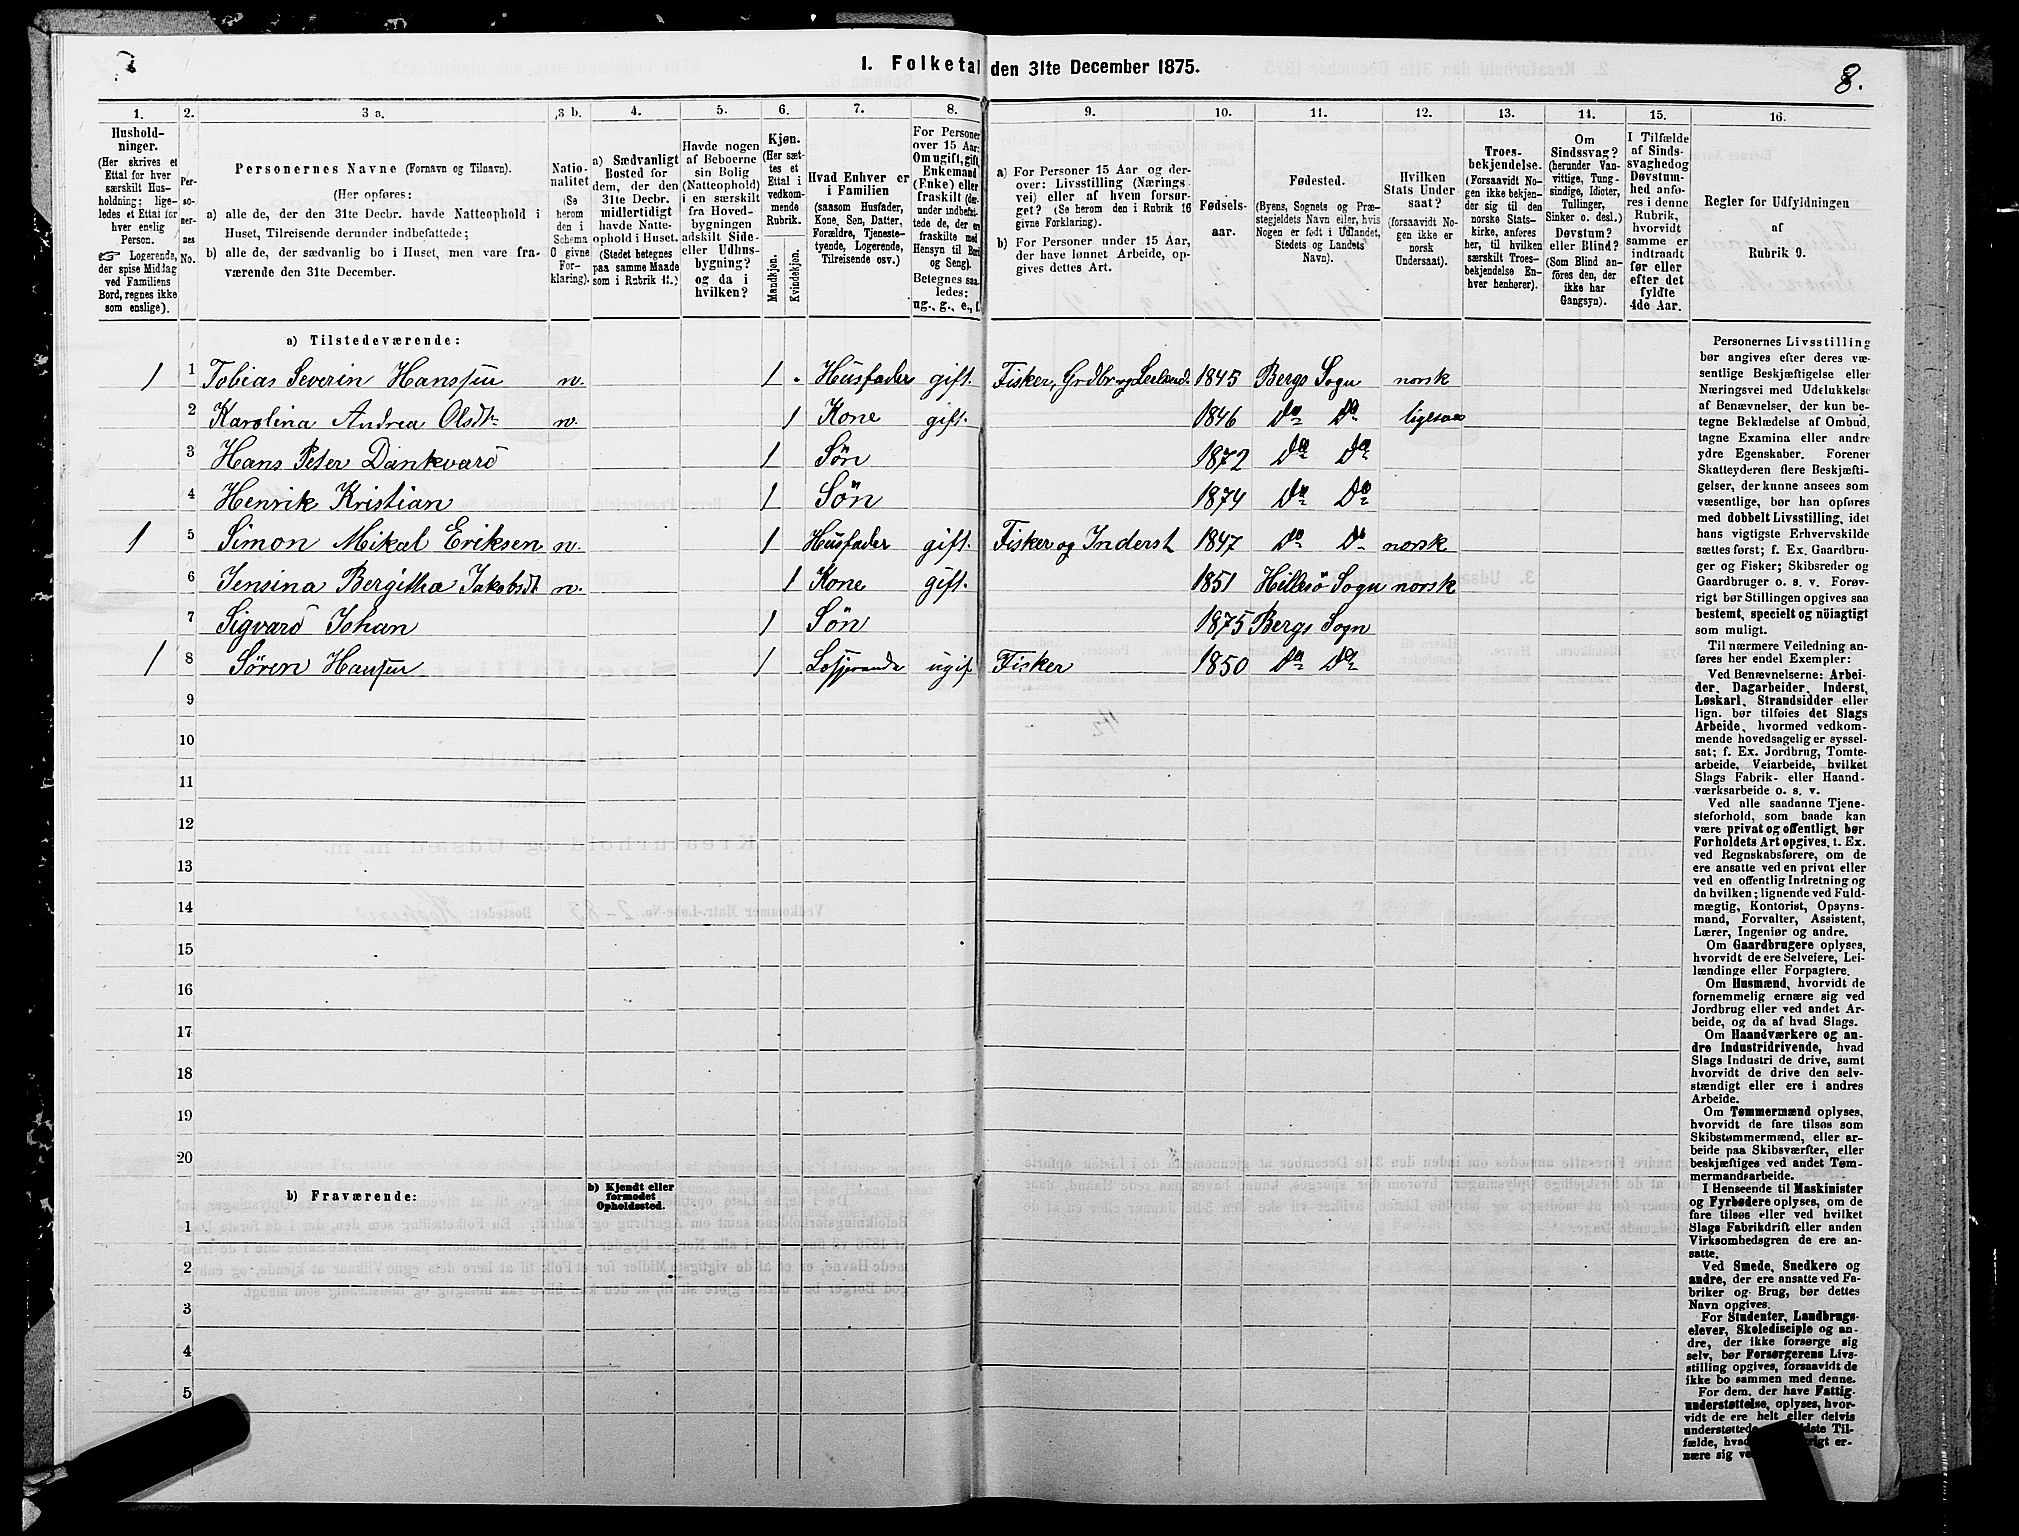 1. Folketal den 31te December 1875.
8.
1.
2.
3 a.
3 b.
4.
5.
6.
7.
8.
9.
10.
11.
12.
13.
14.
15.
16.
Hushold-
ninger.
(Her skrives et
Ettal for hver
særskilt Hus-
holdning; lige-
ledes et Ettal for
hver enslig
Person.
☞ Logerende,
der spise Middag
ved Familiens
Bord, regnes ikke
som enslige).
Per-
so-
ner-
nes
No.
Personernes Navne (Fornavn og Tilnavn).
(Her opføres:
a) alle de, der den 31te Decbr. havde Natteophold i
Huset, Tilreisende derunder indbefattede;
b) alle de, der sædvanlig bo i Huset, men vare fra-
værende den 31te December.
Natio-
nalitet
(Se
herom
den i
Schema
O givne
For-
klaring).
a) Sædvanligt
Bosted for
dem, der den
31te Decbr.
midlertidigt
havde Natte-
ophold i Huset.
(Stedet betegnes
paa samme Maade
som i Rubrik 11.)
Havde nogen
af Beboerne
sin Bolig
(Natteophold)
i en særskilt
fra Hoved-
bygningen
adskilt Side-
eller Udhus-
bygning?
og da i
hvilken?
Kjøn.
(Her sæt-
tes et
Ettal i
vedkom-
mende
Rubrik.
Mandkjøn.
Kvindekjøn.
Hvad Enhver er
i Familien
(saasom Husfader,
Kone, Søn, Datter,
Forældre, Tjeneste-
tyende, Logerende,
Tilreisende osv.)
For Personer
over 15 Aar:
Om ugift, gift,
Enkemand
(Enke) eller
fraskilt (der-
under indbefat-
tede de, der ere
fraskilte med
Hensyn til Bord
og Seng).
Betegnes saa-
ledes:
ug., g., e., f.
a) For Personer 15 Aar og der-
over: Livsstilling (Nærings-
vei) eller af hvem forsør-
get? (Se herom den i Rubrik 16
givne Forklaring).
b) For Personer under 15 Aar,
der have lønnet Arbeide, op-
gives dettes Art.
Fødsels-
aar.
Fødested.
(Byens, Sognets og Præ-
stegjeldets Navn eller, hvis
Nogen er født i Udlandet,
Stedets og Landets
Navn).
Hvilken
Stats Under-
saat?
(forsaavidt No-
gen ikke er
norsk
Undersaat).
Troes-
bekjendelse.
(Forsaavidt No-
gen ikke bekjen-
der sig til den
norske Stats-
kirke, anføres
her, til hvilken
særskilt Troes-
bekjendelse En-
hver henhører).
Om
Sindssvag?
(herunder Van-
vittige, Tung-
sindige, Idioter,
Tullinger,
Sinker o. desl.)
Døvstum?
eller Blind?
(Som Blind an-
føres den, der
ikke har
Gangsyn).
I Tilfælde
af Sinds-
svaghed og
Døvstum-
hed anfø-
res i denne
Rubrik,
hvorvidt
samme er
indtraadt
før eller
efter det
fyldte
4de Aar.
Regler for Udfyldningen
af
Rubrik 9.
a) Tilstedeværende:
1 1 Tobias Severin Hanssen n. 1 Husfader gift. Fisker, 1845 Bergs Sogn norsk
2 Karolina Andrea Olsdtr n. 1 Kone gift. 1846 Do Do ligesaa
3 Hans Peter Dankvard 1 Søn 1872 Do Do
4 Henrik Kristian 1 Søn 1874 Do Do
1 5 Simon Mikal Eriksen n. 1 Husfader gift. Fisker og Inderst 1847 Do Do norsk
6 Jensina Bergitha Jakobsdt n. 1 Kone gift. 1851 Hillesö Sogn norsk
7 Sigvard Johan 1 Søn 1875 Bergs Sogn
1 8 Sören Hansen 1 Losjerende ugif Fisker 1850 Do Do
9
10
11
12
13
14
15
16
17
18
19
20
b) Fraværende:
b) Kjendt eller
formodet
Opholdssted.
1
2
3
4
5
Personernes Livsstilling
bør angives efter deres væ-
sentlige Beskjæftigelse eller
Næringsvei med Udelukkelse
af Benævnelser, der kun be-
tegne Beklædelse af Ombud,
tagne Examina eller andre
ydre Egenskaber. Forener
Skatteyderen flere Beskjæfti-
gelser, der kunne ansees som
væsentlige, bør han opføres
med dobbelt Livsstilling, idet
hans vigtigste Erhvervskilde
sættes først; f. Ex. Gaardbru-
ger og Fisker; Skibsreder og
Gaardbruger o. s. v. Forøv-
rigt bør Stillingen opgives saa
bestemt, specielt og nöiagtigt
som muligt.
Til nærmere Veiledning an-
føres her endel Exempler:
Ved Benævnelserne: Arbei-
der, Dagarbeider, Inderst,
Løskarl, Strandsidder eller
lign. bør tilføies det Slags
Arbeide, hvormed vedkom-
mende hovedsagelig er syssel-
sat; f. Ex. Jordbrug, Tomte-
arbeide, Veiarbeide, hvilket
Slags Fabrik- eller Haand-
værksarbeide o. s. v.
Ved alle saadanne Tjene-
steforhold, som baade kan
være privat og offentligt, bør
Forholdets Art opgives, t. Ex.
ved Regnskabsførere, om de
ere ansatte ved en privat eller
ved en offentlig Indretning og
da hvilken; lignende ved Fuld-
mægtig, Kontorist, Opsyns-
mand, Forvalter, Assistent,
Lærer, Ingeniør og andre.
Om Gaardbrugere oplyses,
hvorvidt de ere Selveiere, Lei-
lændinge eller Forpagtere.
Om Husmænd, hvorvidt de
fornemmelig ernære sig ved
Jordbrug eller ved andet Ar-
beide, og da af hvad Slags.
Om Haandværkere og an-
dre Industridrivende, hvad
Slags Industri de drive, samt
hvorvidt de drive den selv-
stændigt eller ere i andres
Arbeide.
Om Tømmermænd oplyses,
hvorvidt de fare tilsøs som
Skibstømmermænd, eller ar-
beide paa Skibsværfter, eller
beskjæftiges ved andet Tøm-
mermandsarbeide.
I Henseende til Maskinister
og Fyrbødere oplyses, om de
fare tilsøs eller ved hvilket
Slags Fabrikdrift eller anden
Virksomhedsgren de ere an-
satte.
Ved Smede, Snedkere og
andre, der ere ansatte ved Fa-
briker og Brug, bør dettes
Navn opgives.
For Studenter, Landbrugs-
elever, Skoledisciple og an-
dre, der ikke forsørge sig
selv, bør Forsørgerens Livs-
stilling opgives, forsaavidt de
ikke bo sammen med denne.
For dem, der have Fattig-
understøttelse, oplyses, hvor-
vidt de ere helt eller delvis
understøttede
fælde, er-
nære sig